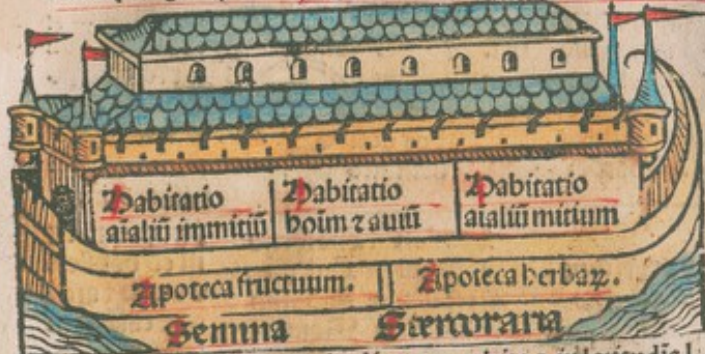 Habitatio
aialiū immitiū
Habitatio
hoim ⁊ auiū
Habitatio
aialiū mitium
Apoteca fructuum.
Apoteca herbaꝝ.
Semina
Stercoraria